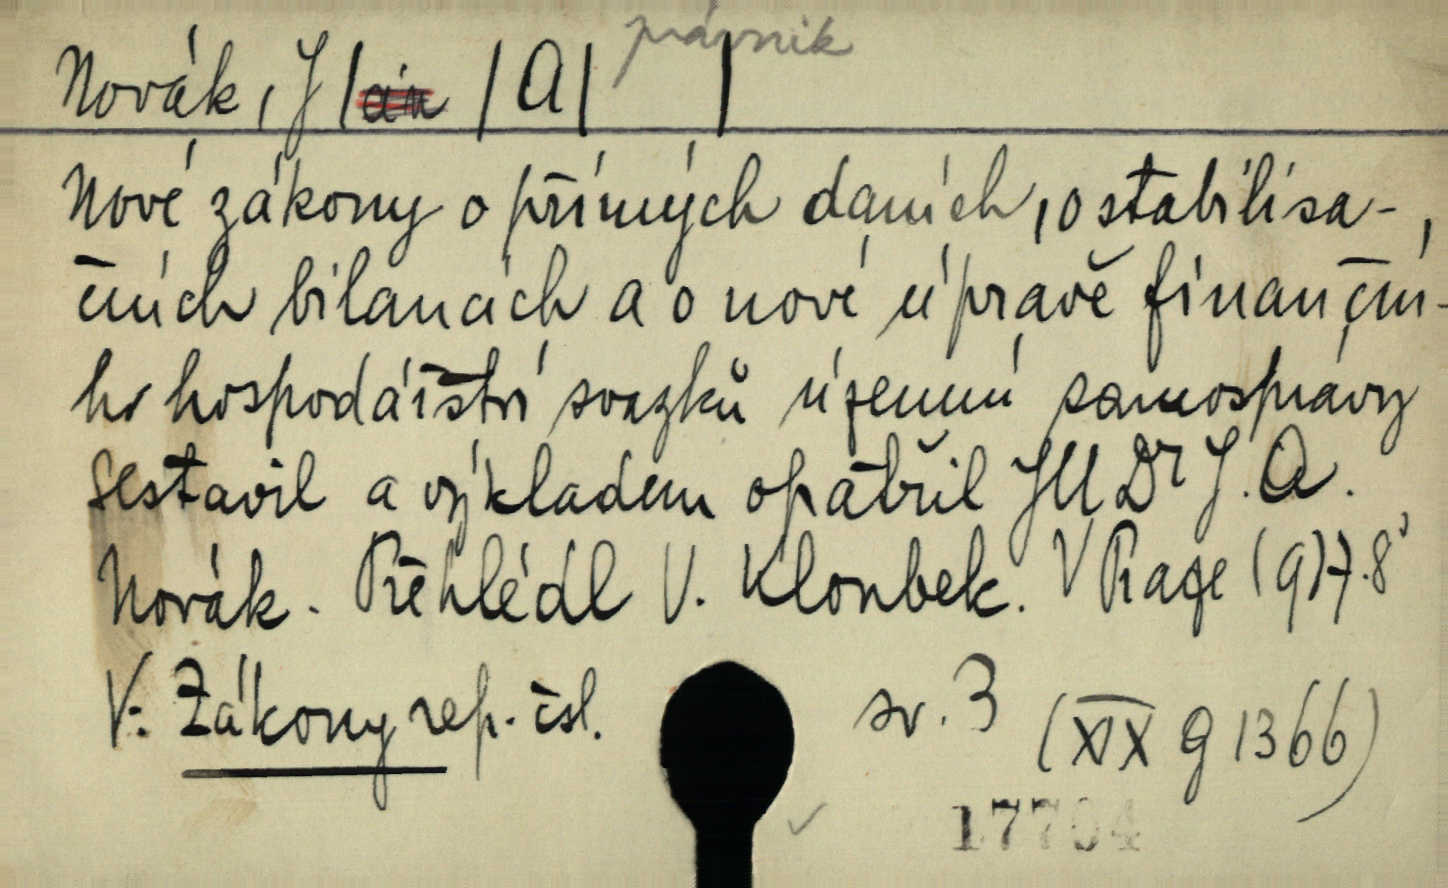 právník
Novák, J |án | A| |
Nové zákony o přímých daních, o stabilisa-
čních bilancích a o nové úpravě finanční-
ho hospodářství svazků územní samosprávy
sestavil a výkladem opatřil JUDr J. A.
Novák. Přehlédl V. Kloubek. V Praze 1927. 8°
V: Zákony rep. čsl. sv. 3 (XIX g 1366)
17704